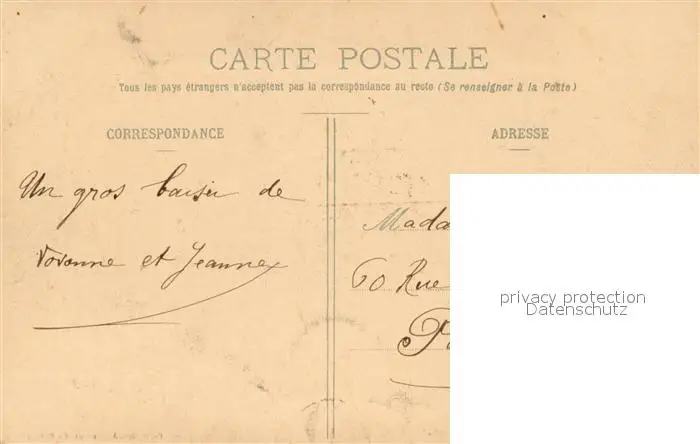 CARTE POSTALE
Tous les pays étrangers n'acceptent pas la correspondance au recto (Se renseigner à la Poste)
CORRESPONDANCE
ADRESSE
Un gros baiser de
Vovonne et Jeanne
Mada
60 Rue
P
privacy protection
Datenschutz